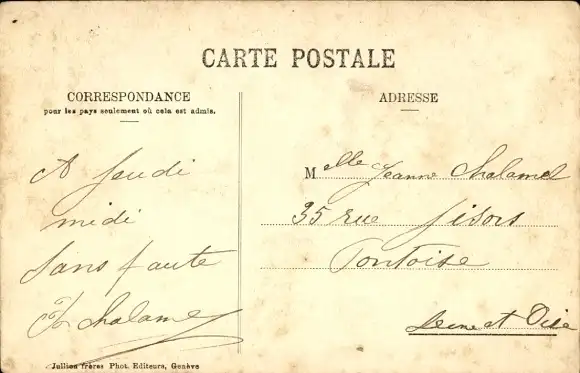 CARTE POSTALE
CORRESPONDANCE
pour les pays seulement où cela est admis.
ADRESSE
A Jeudi
midi
sans faute
Chalamel
Melle Jeanne Chalamel
35 rue Gisors
Pontoise
Seine et Oise
Jullien frères Phot. Editeurs, Genève